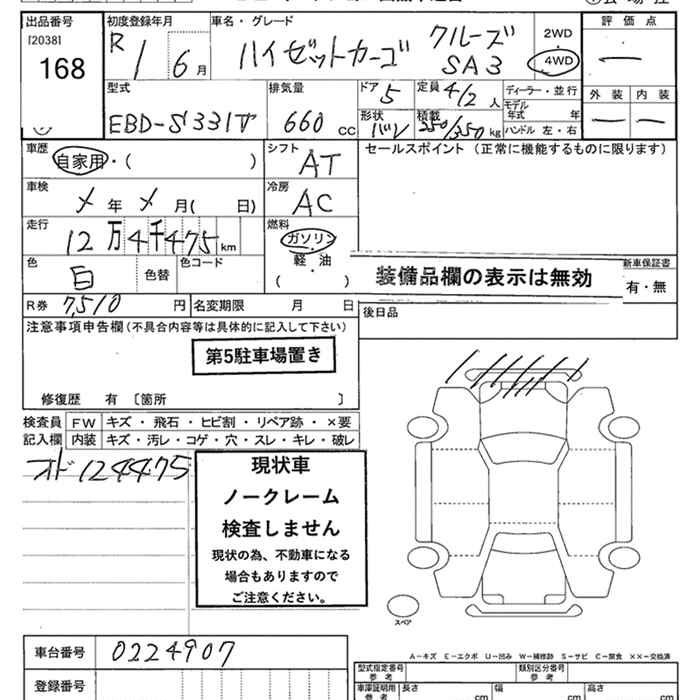 出品番号 初度登録年月 車名・グレード 評価点
[2038]
168
R 1 6月
ハイゼットカーゴ クルーズ SA3
2WD
4WD
—
型式 排気量 ドア 定員 ディーラー・並行 外装 内装
EBD-S331V 660 CC 5 4/2人
形状 積載 モデル年式 年
バン 250/350kg ハンドル 左・右 — —
車歴 シフト セールスポイント（正常に機能するものに限ります）
自家用・（ ） AT
車検 冷房
メ年メ月（ 日） AC
走行 燃料
12万4千475km ガソリン
軽・油
（ ）
色 色替 色コード
白
装備品欄の表示は無効
新車保証書
有・無
R券 7,510円 名変期限 月 日
後日品
注意事項申告欄（不具合内容等は具体的に記入して下さい）
第5駐車場置き
修復歴 有〔箇所 〕
検査員記入欄 FW キズ・飛石・ヒビ割・リペア跡・×要
内装 キズ・汚レ・コゲ・穴・スレ・キレ・破レ
オド124475
現状車
ノークレーム
検査しません
現状の為、不動車になる
場合もありますので
ご注意ください。
スペア
A－キズ E－エクボ U－凹み W－補修跡 S－サビ C－腐食 ××－交換済
車台番号 0224907
型式指定番号 参考 類別区分番号 参考
登録番号
車庫証明用 参考 長さ cm 幅 cm 高さ cm